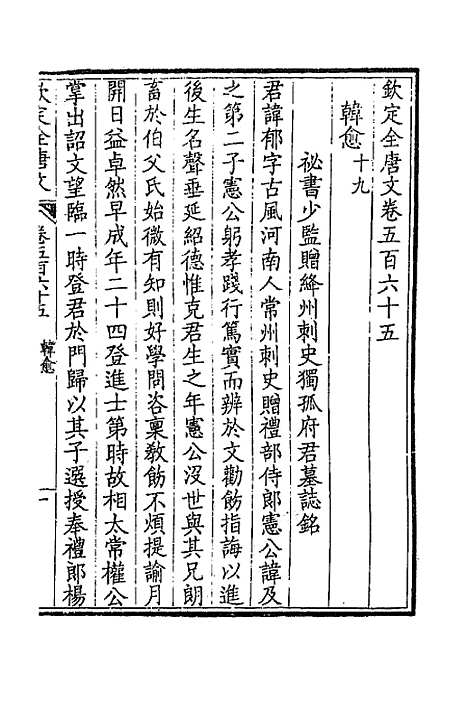 欽定全唐文卷五百六十五
韓愈十九
祕書少監贈絳州刺史獨孤府君墓誌銘
君諱郁字古風河南人常州刺史贈禮部侍郎憲公諱及
之第二子憲公躬孝踐行篤實而辨於文勸飭指誨以進
後生名聲垂延紹德惟克君生之年憲公沒世與其兄朗
畜於伯父氏始微有知則好學問咨稟教飭不煩提諭月
開日益卓然早成年二十四登進士第時故相太常權公
掌出詔文望臨一時登君於門歸以其子選授奉禮郎楊
欽定全唐文
卷五百六十五
韓愈
一